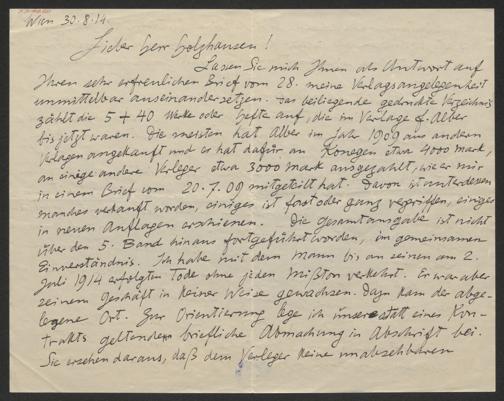 Wien 30.8.14.
Lieber Herr Holzhausen!
Lassen Sie mich Ihnen als Antwort auf
Ihren sehr erfreulichen Brief vom 28. meine Verlagsangelegenheit
unmittelbar auseinandersetzen. Das beiliegende gedruckte Verzeichnis
zählt die 5 + 40 Werke oder Hefte auf, die im Verlage G. Alber
bis jetzt waren. Die meisten hat Alber im Jahr 1909 aus andern
Verlagen angekauft und er hat dafür an Konegen etwa 4000 Mark,
an einige andere Verleger etwa 3000 Mark ausgezahlt, wie er mir
in einem Brief vom 20.7.09 mitgeteilt hat. Davon ist unterdessen
manches verkauft worden, einiges ist fast oder ganz vergriffen, einiges
in neuen Auflagen erschienen. Die Gesamtausgabe ist nicht
über den 5. Band hinaus fortgeführt worden, im gemeinsamen
Einverständnis. Ich habe mit dem Mann bis an seinen am 2.
Juli 1914 erfolgten Tode ohne jeden Mißton verkehrt. Er war aber
seinem Geschäft in keiner Weise gewachsen. Dazu kam der abge-
legene Ort. Zur Orientierung lege ich unsere statt eines Kon-
trakts geltenden briefliche Abmachung in Abschrift bei.
Sie ersehen daraus, daß dem Verleger keine unabsehbaren